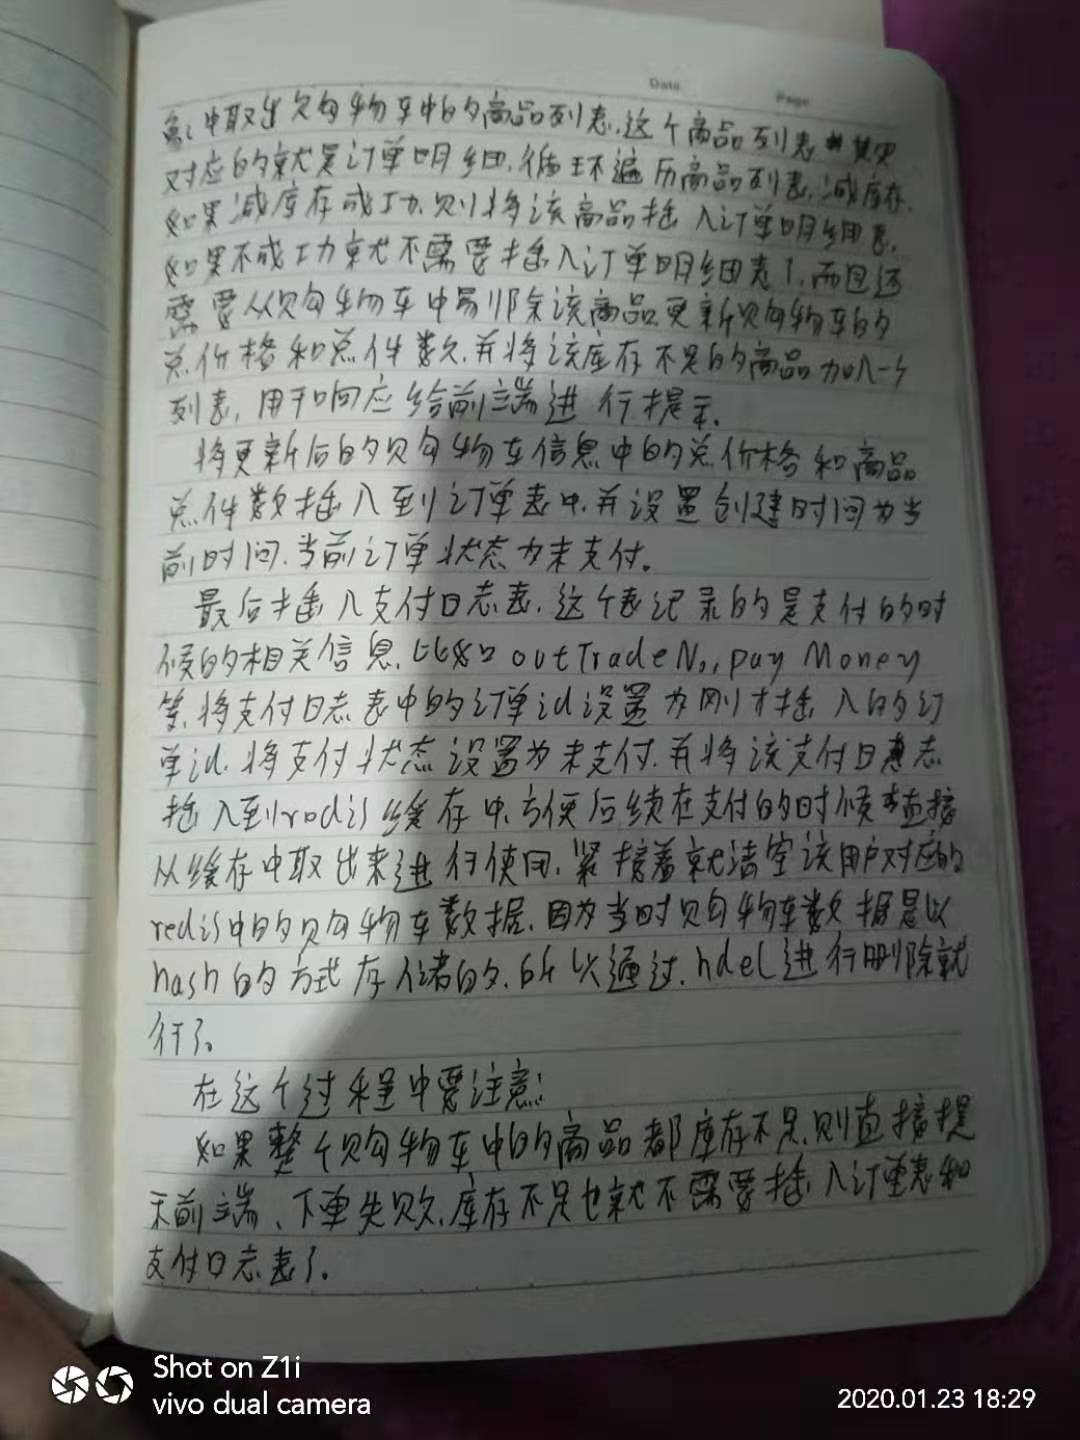 Date
Page
息中取出购物车中的商品列表,这个商品列表其实
对应的就是订单明细,循环遍历商品列表,减库存,
如果减库存成功,则将该商品插入订单明细表,
如果不成功就不需要插入订单明细表了,而且还
需要从购物车中剔除该商品,更新购物车的
总价格和总件数,并将该库存不足的商品加入一个
列表,用于响应给前端进行提示。
将更新后的购物车信息中的总价格和商品
总件数插入到订单表中,并设置创建时间为当
前时间,当前订单状态为未支付。
最后插入支付日志表,这个表记录的是支付的时
候的相关信息,比如outTradeNo,payMoney
等,将支付日志表中的订单id设置为刚才插入的订
单id,将支付状态设置为未支付,并将该支付日志
插入到redis缓存中,方便后续在支付的时候直接
从缓存中取出来进行使用,紧接着就清空该用户对应的
redis中的购物车数据,因为当时购物车数据是以
hash的方式存储的,所以通过,hdel进行删除就
行了。
在这个过程中要注意:
如果整个购物车中的商品都库存不足,则直接提
示前端、下单失败,库存不足也就不需要插入订单表和
支付日志表了。
Shot on Z1i
vivo dual camera
2020.01.23 18:29